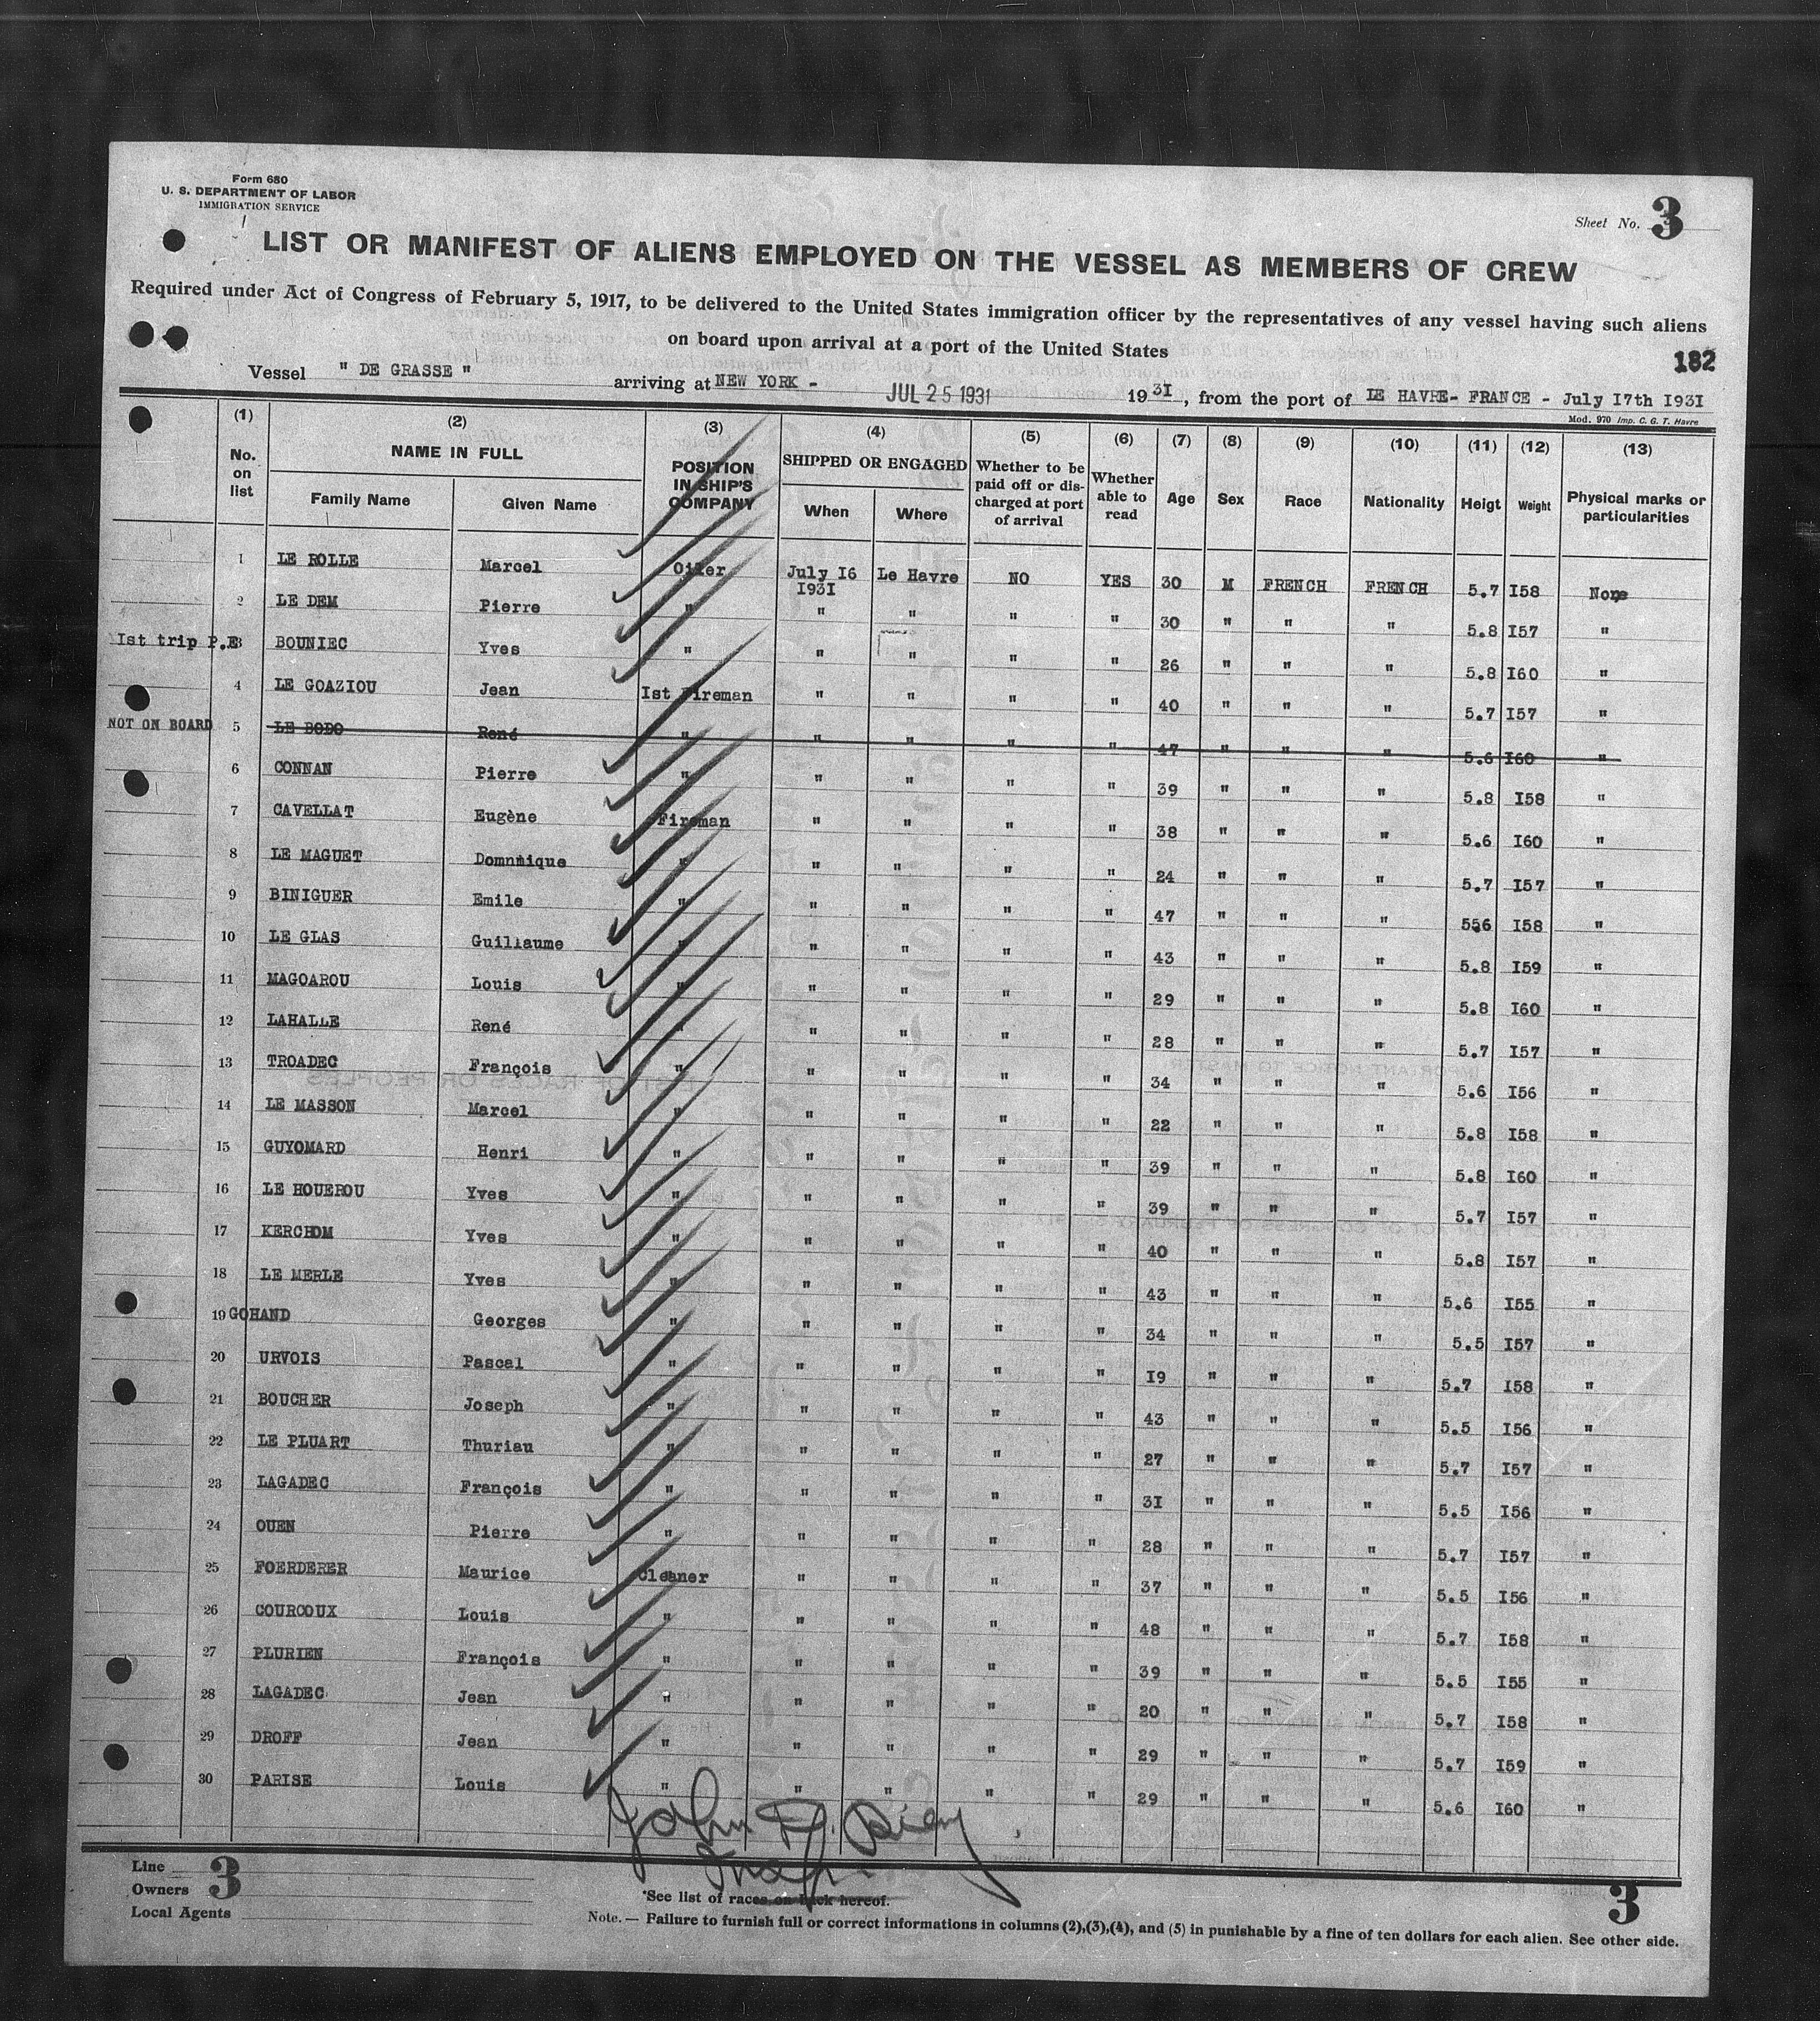 Form 680
U. S. DEPARTMENT OF LABOR
IMMIGRATION SERVICE
Sheet No. 3
LIST OR MANIFEST OF ALIENS EMPLOYED ON THE VESSEL AS MEMBERS OF CREW
Required under Act of Congress of February 5, 1917, to be delivered to the United States immigration officer by the representatives of any vessel having such aliens
on board upon arrival at a port of the United States
182
Vessel " DE GRASSE " arriving at NEW YORK - JUL 25 1931 1931, from the port of LE HAVRE- FRANCE - July I7th I93I
Mod. 970 Imp. C. G. T. Havre
(1) (2) (3) (4) (5) (6) (7) (8) (9) (10) (11) (12) (13)
No. on list NAME IN FULL Family Name Given Name POSITION IN SHIP'S COMPANY SHIPPED OR ENGAGED When Where Whether to be paid off or discharged at port of arrival Whether able to read Age Sex Race Nationality Heigt Weight Physical marks or particularities
1 LE ROLLE Marcel Oiler July I6 I93I Le Havre NO YES 30 M FRENCH FRENCH 5.7 I58 None
2 LE DEM Pierre " " " " " 30 " " " 5.8 I57 "
Ist trip P.E 3 BOUNIEC Yves " " " " " 26 " " " 5.8 I60 "
4 LE GOAZIOU Jean Ist Fireman " " " " 40 " " " 5.7 I57 "
NOT ON BOARD 5 LE BODO René " " " " " 47 " " " 5.6 I60 "
6 CONNAN Pierre " " " " " 39 " " " 5.8 I58 "
7 CAVELLAT Eugène Fireman " " " " 38 " " " 5.6 I60 "
8 LE MAGUET Domnique " " " " " 24 " " " 5.7 I57 "
9 BINIGUER Emile " " " " " 47 " " " 556 I58 "
10 LE GLAS Guillaume " " " " " 43 " " " 5.8 I59 "
11 MAGOAROU Louis " " " " " 29 " " " 5.8 I60 "
12 LAHALLE René " " " " " 28 " " " 5.7 I57 "
13 TROADEC François " " " " " 34 " " " 5.6 I56 "
14 LE MASSON Marcel " " " " " 22 " " " 5.8 I58 "
15 GUYOMARD Henri " " " " " 39 " " " 5.8 I60 "
16 LE HOUEROU Yves " " " " " 39 " " " 5.7 I57 "
17 KERCHOM Yves " " " " " 40 " " " 5.8 I57 "
18 LE MERLE Yves " " " " " 43 " " " 5.6 I55 "
19 GOHAND Georges " " " " " 34 " " " 5.5 I57 "
20 URVOIS Pascal " " " " " I9 " " " 5.7 I58 "
21 BOUCHER Joseph " " " " " 43 " " " 5.5 I56 "
22 LE PLUART Thuriau " " " " " 27 " " " 5.7 I57 "
23 LAGADEC François " " " " " 3I " " " 5.5 I56 "
24 OUEN Pierre " " " " " 28 " " " 5.7 I57 "
25 FOERDERER Maurice Cleaner " " " " 37 " " " 5.5 I56 "
26 COURCOUX Louis " " " " " 48 " " " 5.7 I58 "
27 PLURIEN François " " " " " 39 " " " 5.5 I55 "
28 LAGADEC Jean " " " " " 20 " " " 5.7 I58 "
29 DROFF Jean " " " " " 29 " " " 5.7 I59 "
30 PARISE Louis " " " " " 29 " " " 5.6 I60 "
John
Line
Owners 3
Local Agents
*See list of races on back hereof.
3
Note. — Failure to furnish full or correct informations in columns (2),(3),(4), and (5) in punishable by a fine of ten dollars for each alien. See other side.